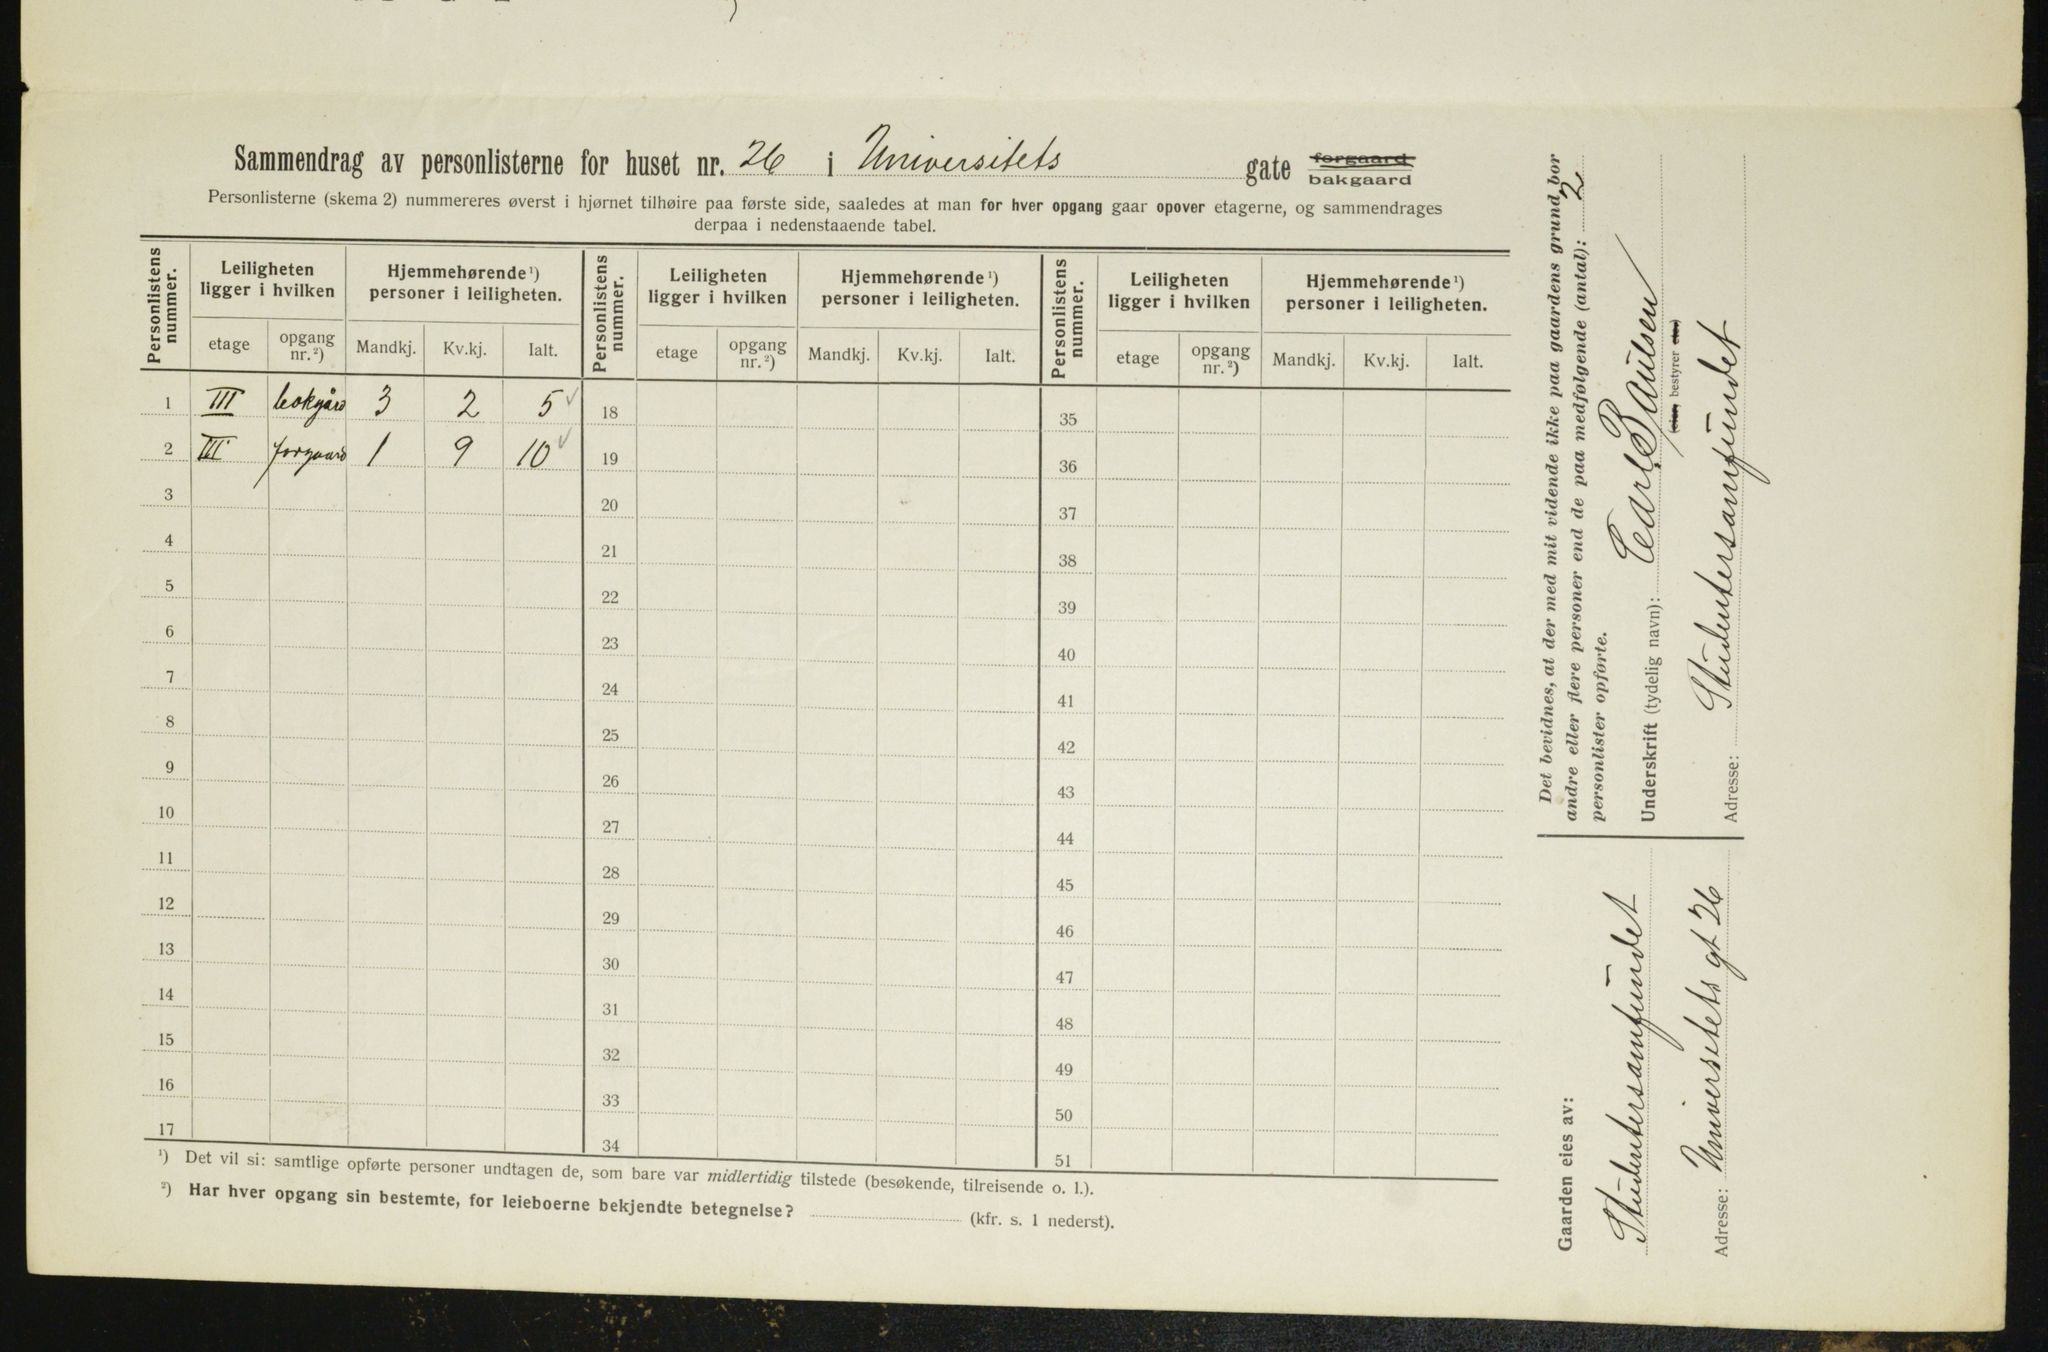 Sammendrag av personlisterne for huset nr. 26 i Universitets gate forgaard
bakgaard
Personlisterne (skema 2) nummereres øverst i hjørnet tilhøire paa første side, saaledes at man for hver opgang gaar opover etagerne, og sammendrages
derpaa i nedenstaaende tabel.
Personlistens nummer. Leiligheten ligger i hvilken Hjemmehørende ¹) personer i leiligheten. Personlistens nummer. Leiligheten ligger i hvilken Hjemmehørende ¹) personer i leiligheten. Personlistens nummer. Leiligheten ligger i hvilken Hjemmehørende ¹) personer i leiligheten.
etage opgang nr. ²) Mandkj. Kv.kj. Ialt. etage opgang nr. ²) Mandkj. Kv.kj. Ialt. etage opgang nr. ²) Mandkj. Kv.kj. Ialt.
1 III bakgård 3 2 5 18 35
2 III forgaard 1 9 10 19 36
3 20 37
4 21 38
5 22 39
6 23 40
7 24 41
8 25 42
9 26 43
10 27 44
11 28 45
12 29 46
13 30 47
14 31 48
15 32 49
16 33 50
17 34 51
¹) Det vil si: samtlige opførte personer undtagen de, som bare var midlertidig tilstede (besøkende, tilreisende o. l.).
²) Har hver opgang sin bestemte, for leieboerne bekjendte betegnelse? (kfr. s. 1 nederst).
Det bevidnes, at der med mit vidende ikke paa gaardens grund bor
andre eller flere personer end de paa medfølgende (antal): 2
personlister opførte.
Underskrift (tydelig navn): Carl Paulsen
(eier, bestyrer etc.)
Adresse: Studentersamfundet
Gaarden eies av:
Studentersamfundet
Adresse: Universitets gt 26